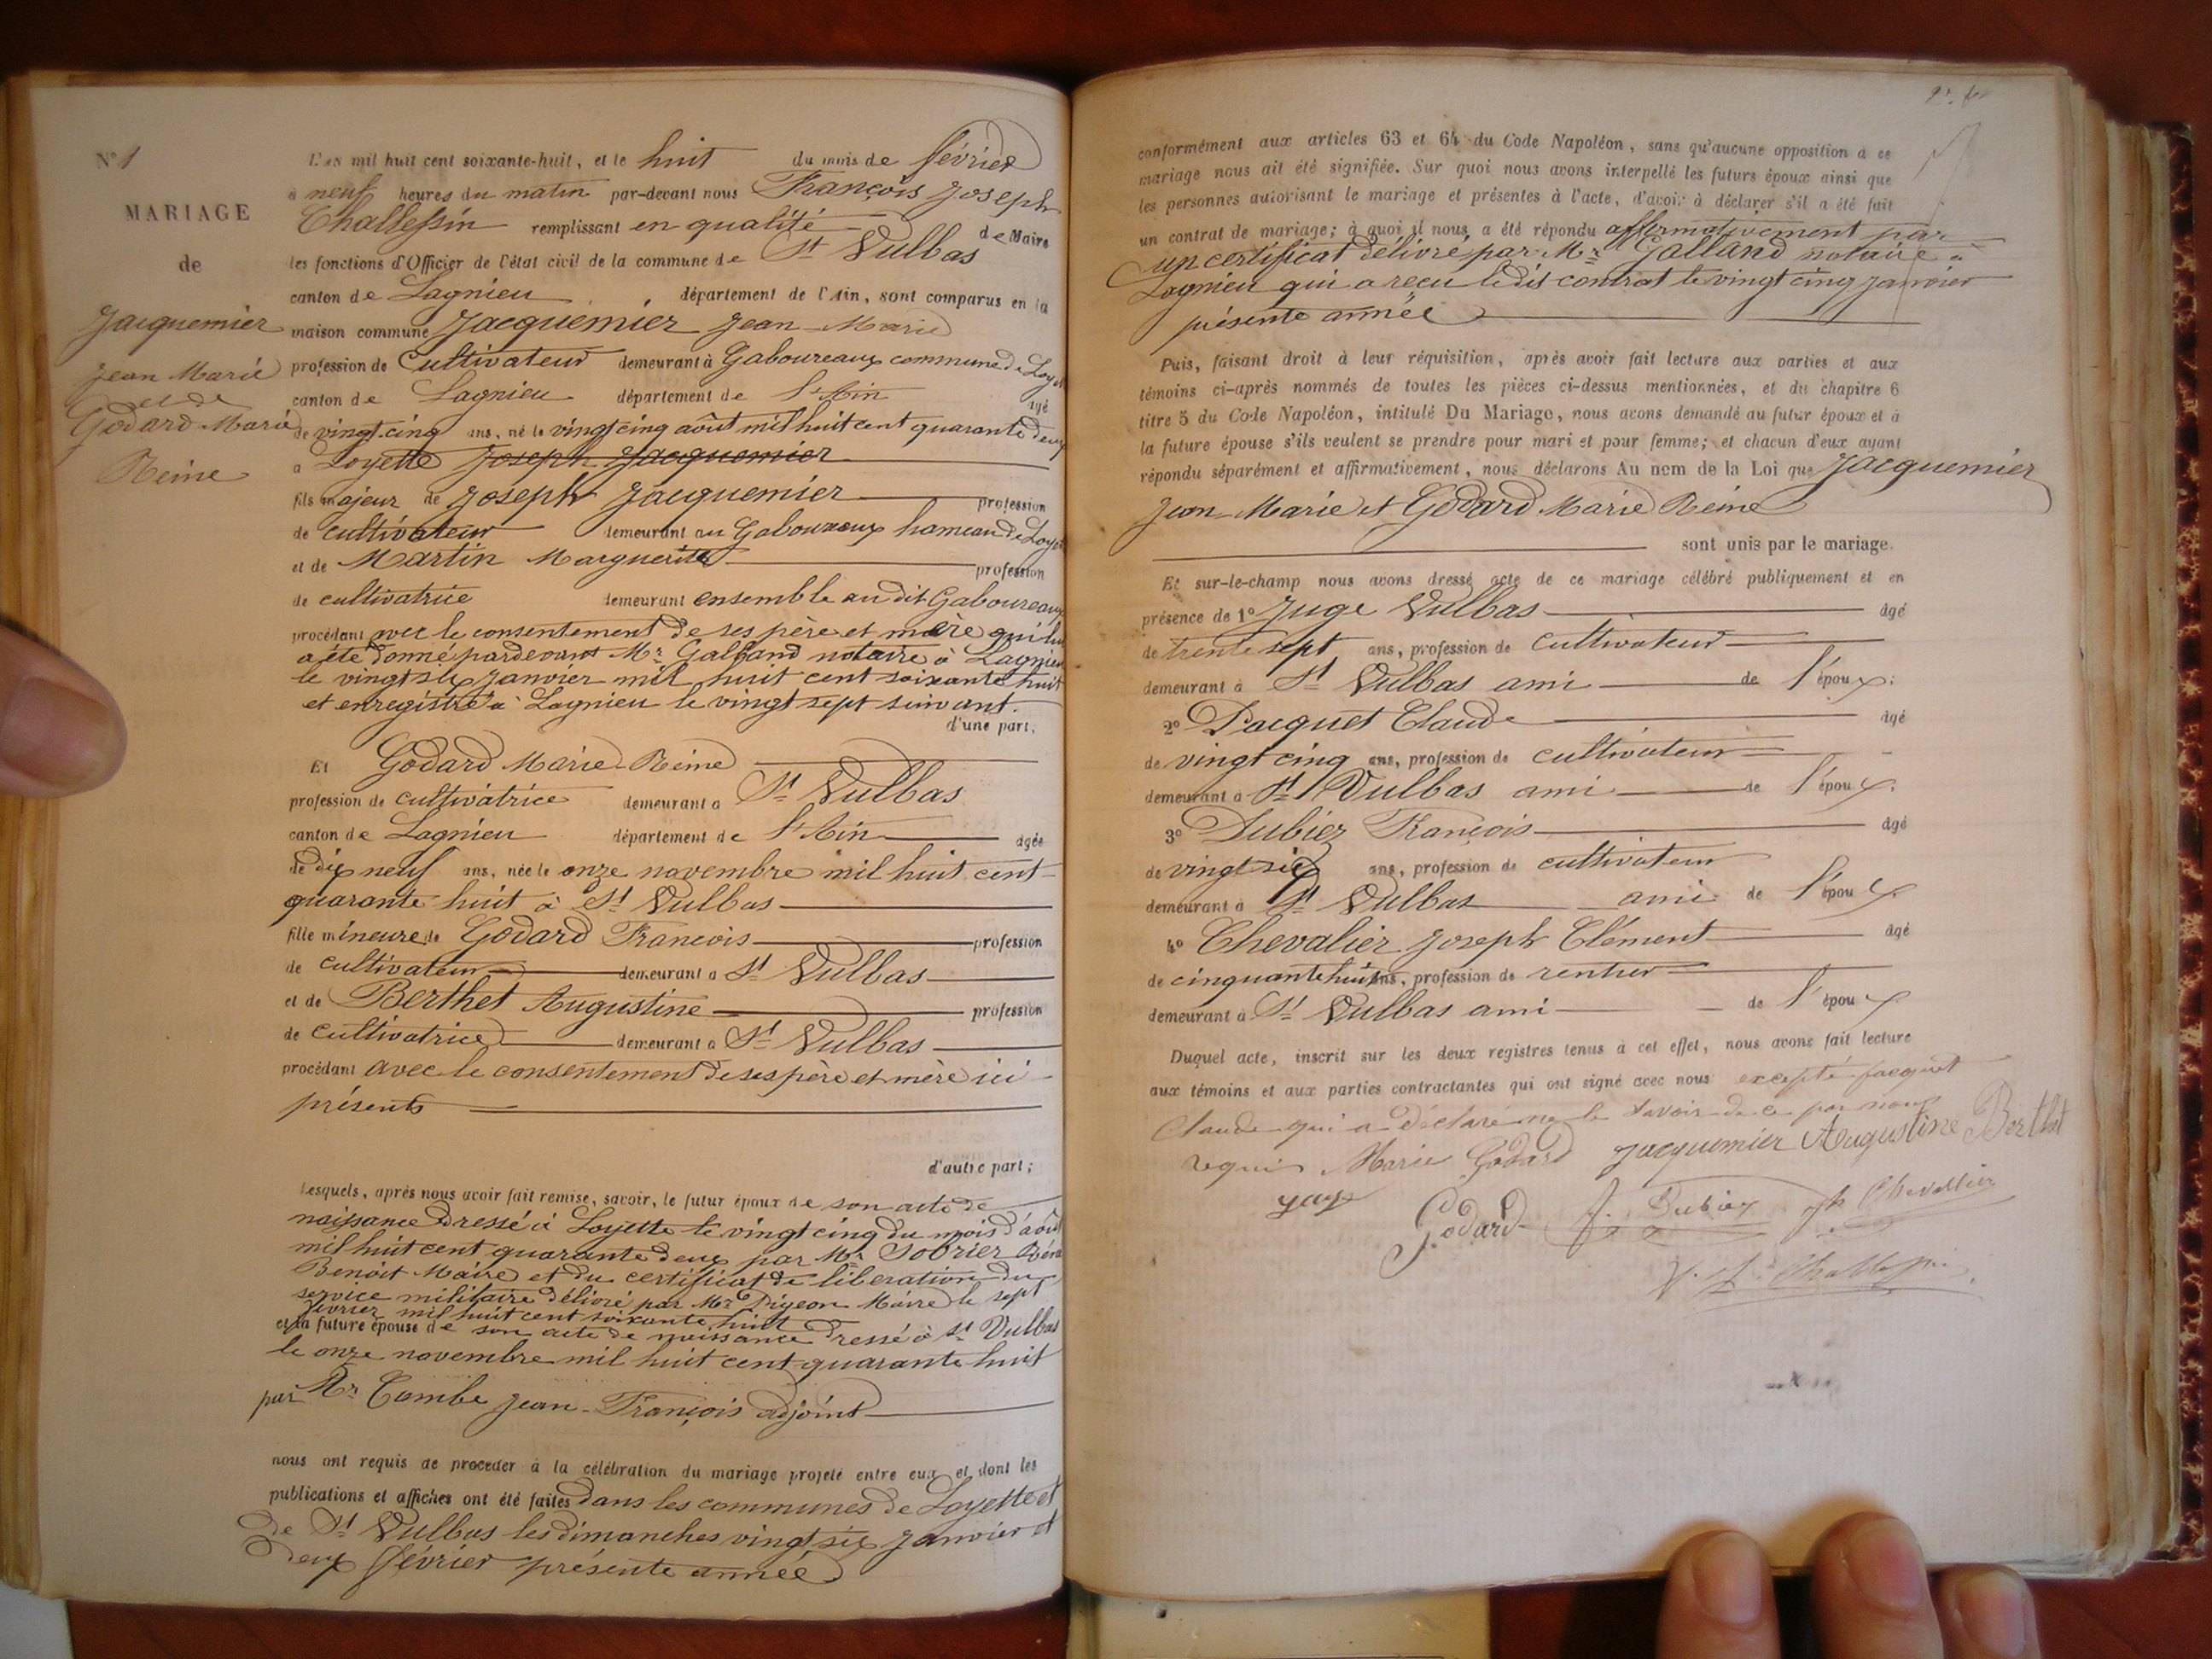 N° 1
MARIAGE
de
Jacquemier
Jean Marie
et de
Godard Marie
Reine
L'an mil huit cent soixante-huit, et le huit du mois de février
à neuf heures du matin par-devant nous François Joseph
Challessin remplissant en qualité de Maire
les fonctions d'Officier de l'état civil de la commune de St Vulbas
canton de Lagnieu, département de l'Ain, sont comparus en la
maison commune Jacquemier Jean-Marie
profession de Cultivateur demeurant à Gaboureaux commune de Loyette
canton de Lagnieu département de l'Ain âgé
de vingt cinq ans, né le vingt cinq août mil huit cent quarante deux
à Loyette Joseph Jacquemier
fils majeur de Joseph Jacquemier profession
de cultivateur demeurant au Gaboureaux hameau de Loyette
et de Martin Marguerite profession
de cultivatrice demeurant ensemble au dit Gaboureaux
procédant avec le consentement de ses père et mère qui lui
a été donné pardevant Mr Galland notaire à Lagnieu
le vingt six janvier mil huit cent soixante huit
et enregistré à Lagnieu le vingt sept suivant.
d'une part,
Et Godard Marie-Reine
profession de cultivatrice demeurant à St Vulbas
canton de Lagnieu département de l'Ain âgée
de dix neuf ans, née le onze novembre mil huit cent
quarante huit à St Vulbas
fille mineure de Godard François profession
de cultivateur demeurant à St Vulbas
et de Berthet Augustine profession
de cultivatrice demeurant à St Vulbas
procédant avec le consentement de ses père et mère ici
présents
d'autre part;
Lesquels, après nous avoir fait remise, savoir, le futur époux de son acte de
naissance dressé à Loyette le vingt cinq du mois d'août
mil huit cent quarante deux par Mr Sobrier
Benoit Maire et du certificat de liberation du
service militaire délivré par Mr Pigeon Maire le sept
février mil huit cent soixante huit
et la future épouse de son acte de naissance dressé à St Vulbas
le onze novembre mil huit cent quarante huit
par Mr Combe Jean-François adjoint
nous ont requis de procéder à la célébration du mariage projeté entre eux et dont les
publications et affiches ont été faites dans les communes de Loyette et
de St Vulbas les dimanches vingt six janvier et
deux février présente année
conformément aux articles 63 et 64 du Code Napoléon, sans qu'aucune opposition à ce
mariage nous ait été signifiée. Sur quoi nous avons interpellé les futurs époux ainsi que
les personnes autorisant le mariage et présentes à l'acte, d'avoir à déclarer s'il a été fait
un contrat de mariage; à quoi il nous a été répondu affirmativement par
un certificat délivré par Mr Galland notaire à
Lagnieu qui a reçu le dit contrat le vingt cinq janvier
présente année
Puis, faisant droit à leur réquisition, après avoir fait lecture aux parties et aux
témoins ci-après nommés de toutes les pièces ci-dessus mentionnées, et du chapitre 6
titre 5 du Code Napoléon, intitulé Du Mariage, nous avons demandé au futur époux et à
la future épouse s'ils veulent se prendre pour mari et pour femme; et chacun d'eux ayant
répondu séparément et affirmativement, nous déclarons Au nom de la Loi que Jacquemier
Jean Marie et Godard Marie Reine
sont unis par le mariage.
Et sur-le-champ nous avons dressé acte de ce mariage célébré publiquement et en
présence de 1° Juge Vulbas âgé
de trente sept ans, profession de cultivateur
demeurant à St Vulbas ami de l'époux.
2° Jacquet Claude âgé
de vingt cinq ans, profession de cultivateur
demeurant à St Vulbas ami de l'époux.
3° Dubiez François âgé
de vingt six ans, profession de cultivateur
demeurant à St Vulbas ami de l'époux.
4° Chevalier Joseph Clément âgé
de cinquante huit ans, profession de rentier
demeurant à St Vulbas ami de l'époux
Duquel acte, inscrit sur les deux registres tenus à cet effet, nous avons fait lecture
aux témoins et aux parties contractantes qui ont signé avec nous excepté Jacquet
Claude qui a déclaré ne le savoir de ce par nous
requis Marie Godard Jacquemier Augustine Berthet
juge Godard F. Dubiez jh Chevallier
Challessin